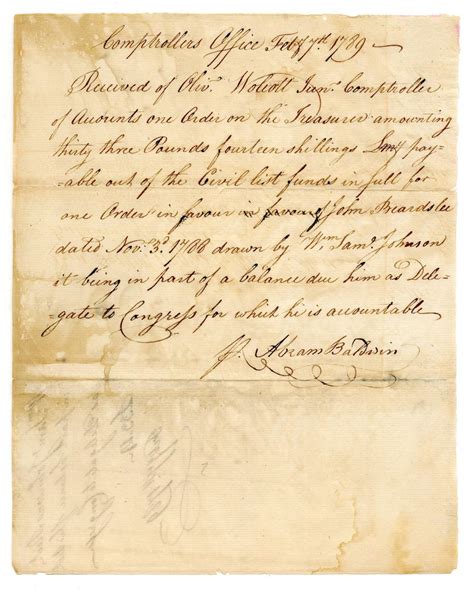 Comptrollers Office Feby 7th 1789
Received of Olivr. Wolcott Junr. Comptroller
of Accounts one Order on the Treasurer amounting
thirty three Pounds fourteen shillings Lmy pay-
able out of the Civil list funds in full for
one Order in favour in favour of John Beardslee
dated Novr. 3d. 1788 drawn by Wm. Saml. Johnson
it being in part of a balance due him as Dele-
gate to Congress for which he is accountable
Abram Baldwin